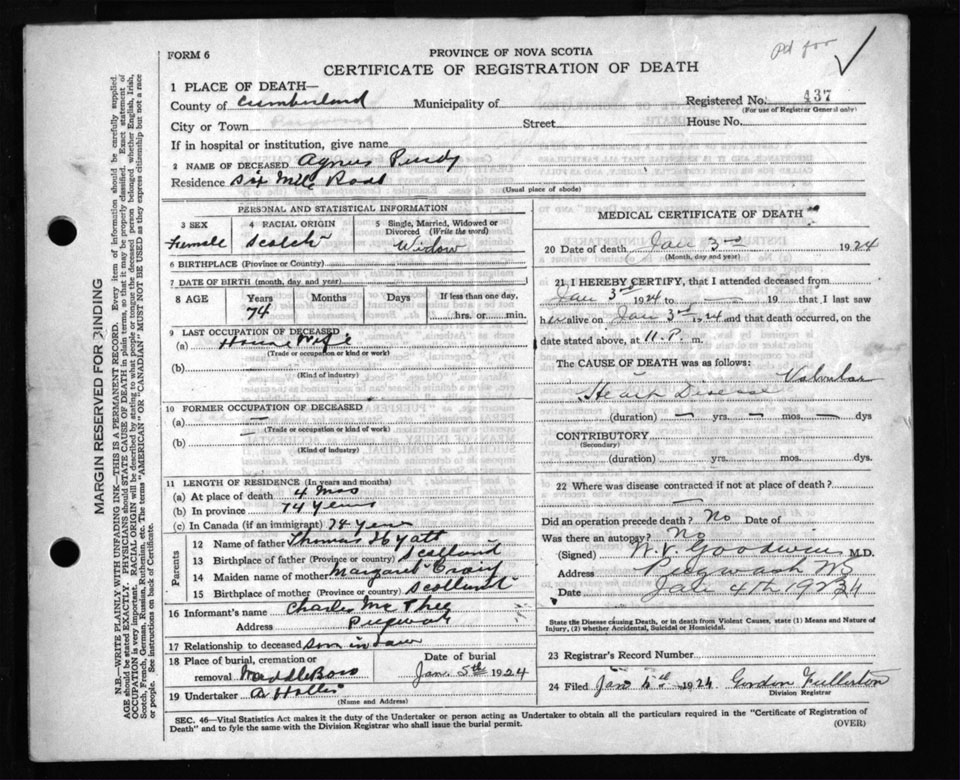 pd for
FORM 6
PROVINCE OF NOVA SCOTIA
CERTIFICATE OF REGISTRATION OF DEATH
1 PLACE OF DEATH—
County of Cumberland Municipality of Registered No. 437
(For use of Registrar General only)
City or Town Street House No.
If in hospital or institution, give name
2 NAME OF DECEASED Agnes Purdy
Residence Six Mile Road
(Usual place of abode)
PERSONAL AND STATISTICAL INFORMATION
3 SEX 4 RACIAL ORIGIN 5 Single, Married, Widowed or Divorced (Write the word)
Female Scotch Widow
6 BIRTHPLACE (Province or Country)
7 DATE OF BIRTH (month, day and year)
8 AGE Years Months Days If less than one day,
74 hrs. or min.
9 LAST OCCUPATION OF DECEASED
(a) House Wife
(Trade or occupation or kind or work)
(b)
(Kind of industry)
10 FORMER OCCUPATION OF DECEASED
(a) —
(Trade or occupation or kind of work)
(b) —
(Kind of industry)
11 LENGTH OF RESIDENCE (In years and months)
(a) At place of death 4 Mos
(b) In province 74 years
(c) In Canada (if an immigrant) 74 years
Parents
12 Name of father Thomas Hyatt
13 Birthplace of father (Province or country) Scotland
14 Maiden name of mother Margaret Craig
15 Birthplace of mother (Province or country) Scotland
16 Informant's name Charles McPhee
Address Pugwash
17 Relationship to deceased Son in law
18 Place of burial, cremation or removal Date of burial
Jan. 5th 1924
19 Undertaker A Hollis
(Name and Address)
MEDICAL CERTIFICATE OF DEATH
20 Date of death Jan 3rd 1924
(Month, day and year)
21 I HEREBY CERTIFY, that I attended deceased from
Jan 3rd 1924 to — 19 that I last saw
h alive on Jan 3rd 1924 and that death occurred, on
date stated above, at 11. P. m.
The CAUSE OF DEATH was as follows:
Valvular
Heart Disease
(duration) — yrs. — mos. — dys
CONTRIBUTORY
(Secondary)
(duration) yrs. mos. dys.
22 Where was disease contracted if not at place of death?
—
Did an operation precede death? No Date of
Was there an autopsy? No
(Signed) W. V. Goodwin M.D.
Address Pugwash NS
Date Jan 4th 1924
State the Disease causing Death, or in death from Violent Causes, state (1) Means and Nature of
Injury, (2) whether Accidental, Suicidal or Homicidal.
23 Registrar's Record Number
24 Filed Jan 1924 Gordon Fullerton
Division Registrar
SEC. 46—Vital Statistics Act makes it the duty of the Undertaker or person acting as Undertaker to obtain all the particulars required in the "Certificate of Registration of
Death" and to fyle the same with the Division Registrar who shall issue the burial permit.
(OVER)
MARGIN RESERVED FOR BINDING
N.B.—WRITE PLAINLY, WITH UNFADING INK—THIS IS A PERMANENT RECORD. Every item of information should be carefully supplied.
AGE should be stated EXACTLY. PHYSICIANS should STATE CAUSE OF DEATH in plain terms, so that it may be properly classified. Exact statement of
OCCUPATION is very important. RACIAL ORIGIN will be described by stating to what people or tongue the deceased person belonged whether English, Irish,
Scotch, French, German, Russian, Ruthenian, etc. The terms "AMERICAN" OR "CANADIAN" MUST NOT BE USED as they express citizenship but not a race
or people. See instructions on back of Certificate.